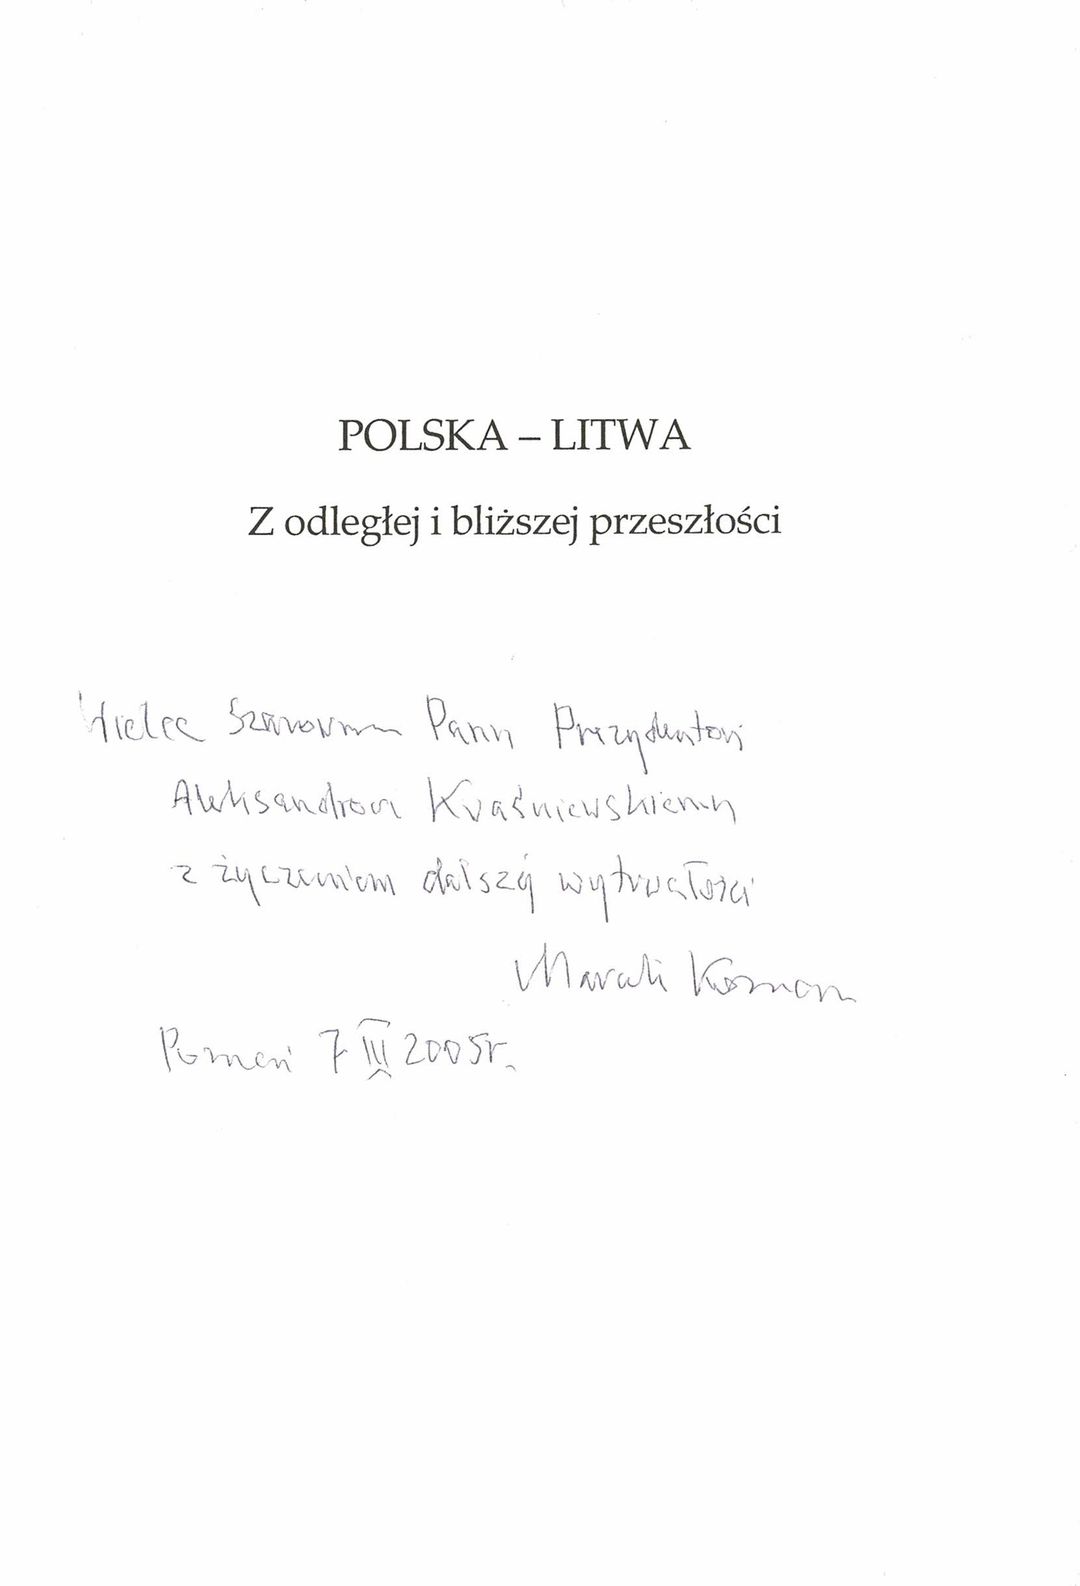 POLSKA – LITWA
Z odległej i bliższej przeszłości
Wielce Szanownemu Panu Prezydentowi
Aleksandrowi Kwaśniewskiemu
z życzeniem dalszej wytrwałości
Marceli Kosman
Poznań 7 III 2005r.